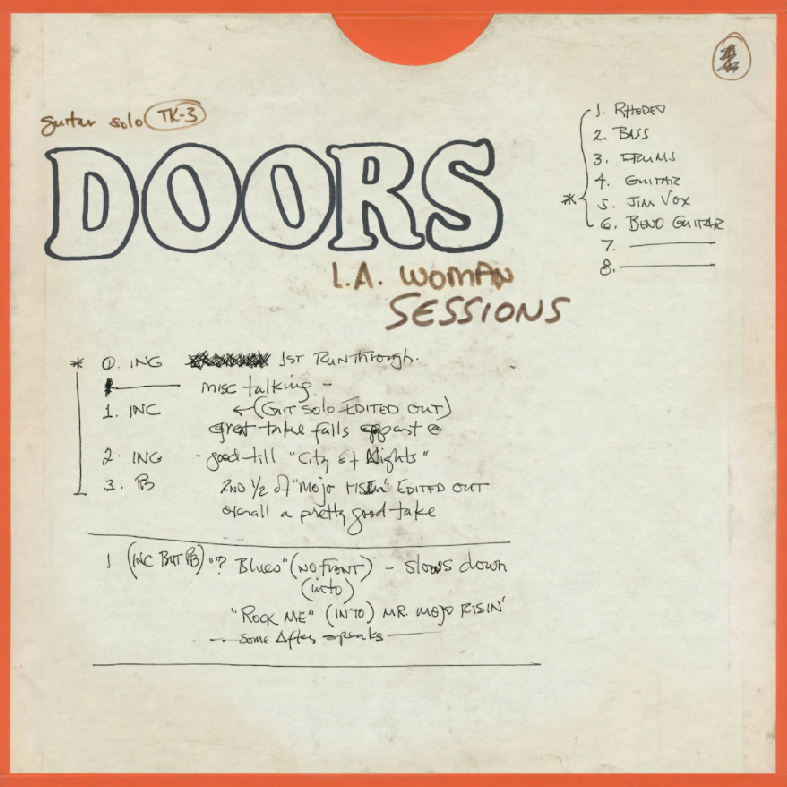 guitar solo TK-3
DOORS
L.A. WOMAN
SESSIONS
1. RHODES
2. BASS
3. DRUMS
4. GUITAR
* 5. JIM VOX
6. BENO GUITAR
7.
8.
* 0. INC 1ST RUNTHROUGH.
misc talking -
1. INC ←(GIT SOLO EDITED OUT)
great take falls apart @
2. INC good till "City of Nights"
3. PB 2ND 1/2 of "Mojo RISIN' EDITED OUT
overall a pretty good take
1 (INC BUT PB) "? Blues" (NO FRONT) - slows down
(into)
"ROCK ME" (INTO) MR. MOJO RISIN'
- some After speaks -